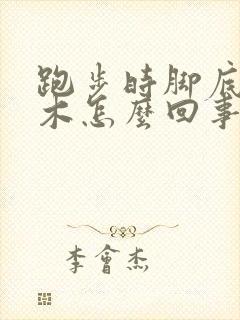 跑步時脚底
木怎麼回事
李會杰